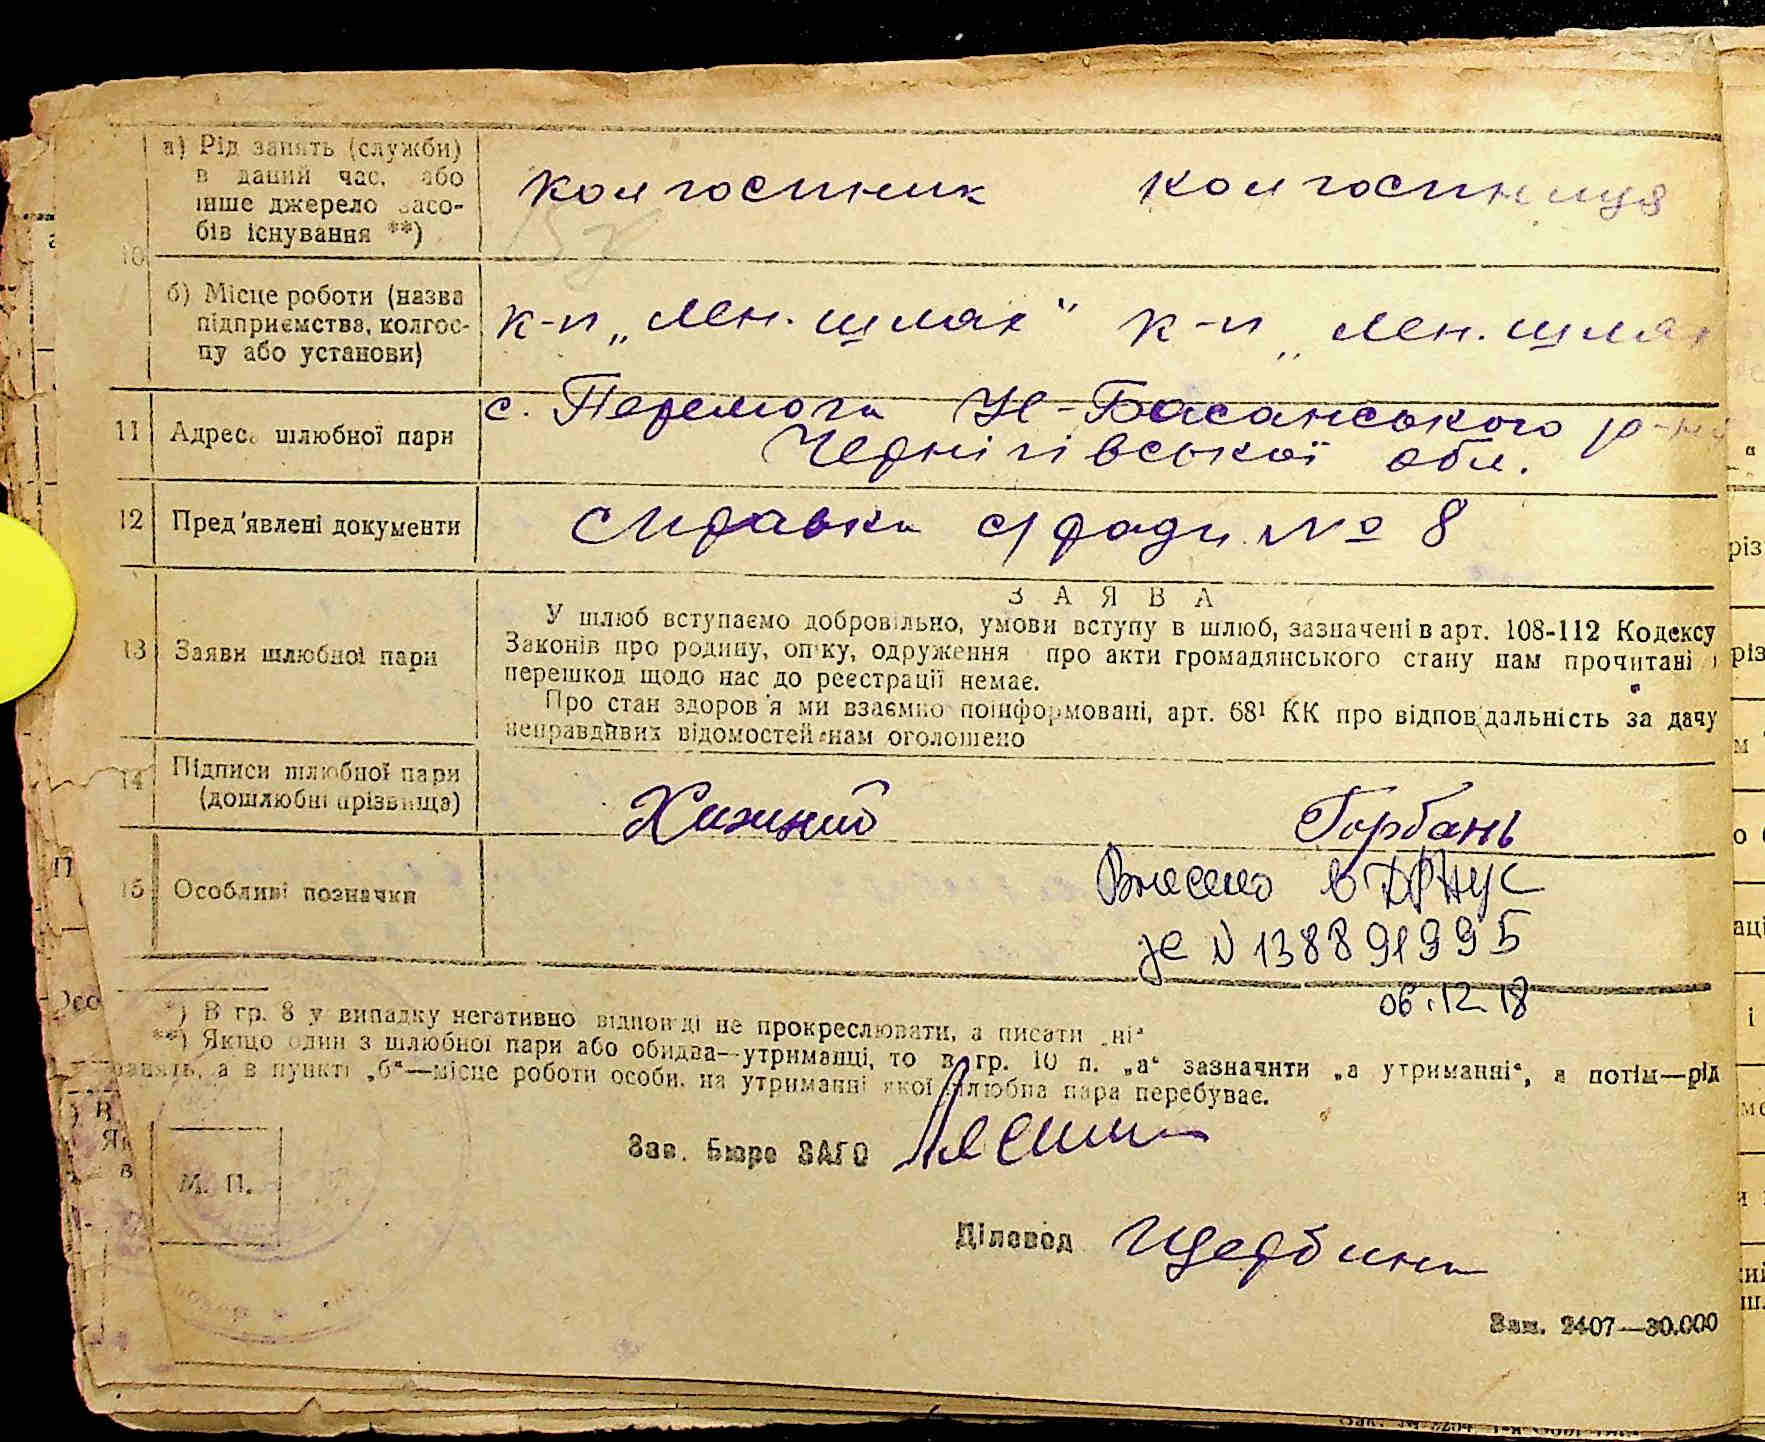 а) Рід занять (служби)
в даний час, або
інше джерело засо-
бів існування **)
колгоспник колгоспниця
10
б) Місце роботи (назва
підприємства, колгос-
пу або установи)
к-п „Лен. шлях" к-п „Лен. шлях
11 Адреса шлюбної пари
с. Перемога Н-Басанського р-ну
Чернігівської обл.
12 Пред'явлені документи
справка с/ради № 8
13 Заяви шлюбної пари
ЗАЯВА
У шлюб вступаємо добровільно, умови вступу в шлюб, зазначені в арт. 108-112 Кодексу
Законів про родину, опіку, одруження про акти громадянського стану нам прочитані і
перешкод щодо нас до реєстрації немає.
Про стан здоров'я ми взаємно поінформовані, арт. 68¹ КК про відповідальність за дачу
неправдивих відомостей нам оголошено
14 Підписи шлюбної пари
(дошлюбні прізвища)
Хижний Горбань
15 Особливі позначки
Внесено в ДРАЦС
№ 138891995
06.12.18
*) В гр. 8 у випадку негативно відповіді не прокреслювати, а писати „ні"
**) Якщо один з шлюбної пари або обидва—утриманці, то в гр. 10 п. „а" зазначити „а утриманні", а потім—рід
занять, а в пункті „б"—місце роботи особи, на утриманні якої шлюбна пара перебуває.
Зав. Бюро ЗАГС
М. П.
Діловод Щербина
Зам. 2407—30.000